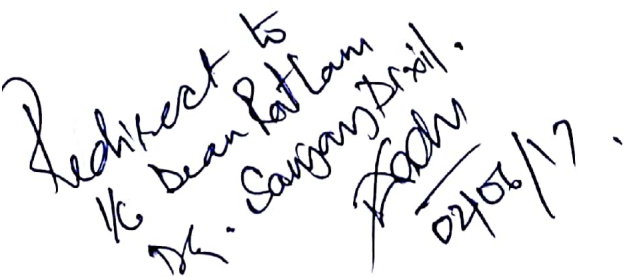 Redirect to
I/C Dean Ratlam
Dr. Sanjay Dixit.
02/06/17.